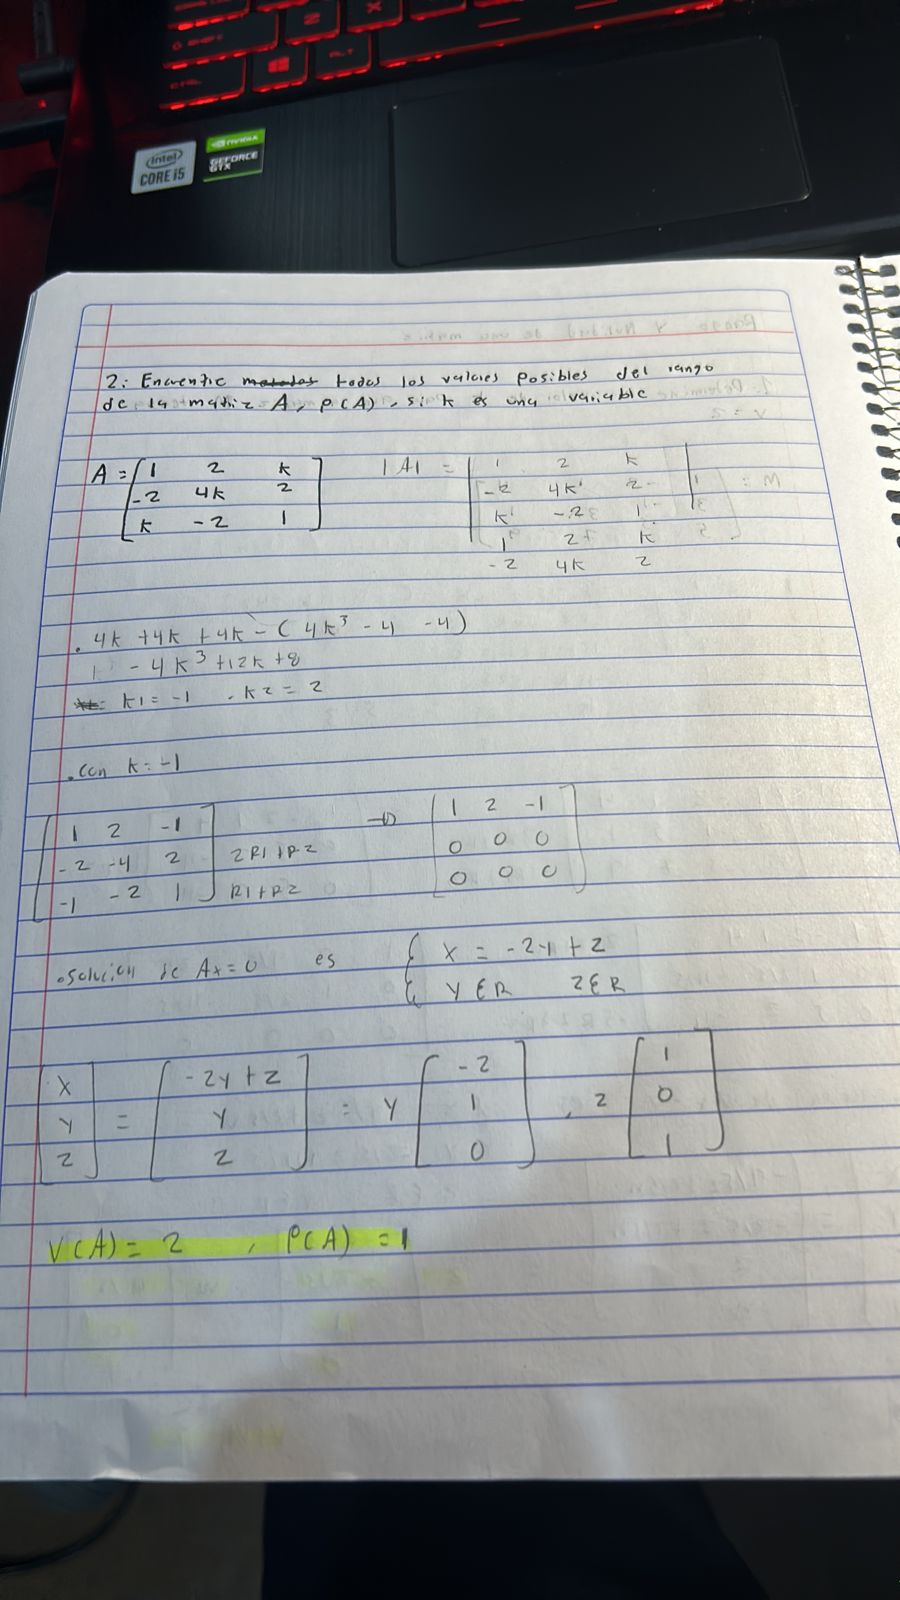 intel
CORE i5
NVIDIA
GEFORCE
GTX
2. Encuentre todos los valores posibles del rango
de la matriz A, ρ(A), si k es una variable
A = [1 2 k
-2 4k 2
k -2 1]
|A| = |1 2 k
-2 4k 2
k -2 1|
1 2 k
-2 4k 2
. 4k + 4k + 4k - (4k³ - 4 - 4)
- 4k³ + 12k + 8
k1 = -1 . k2 = 2
. con k = -1
[1 2 -1
-2 -4 2
-1 -2 1] 2R1+R2
R1+R2
→ [1 2 -1
0 0 0
0 0 0]
. solucion de Ax = 0 es { x = -2y + z
y ∈ R z ∈ R
[x
y
z] = [-2y + z
y
z] = y [-2
1
0] , z [1
0
1]
V(A) = 2 , ρ(A) = 1